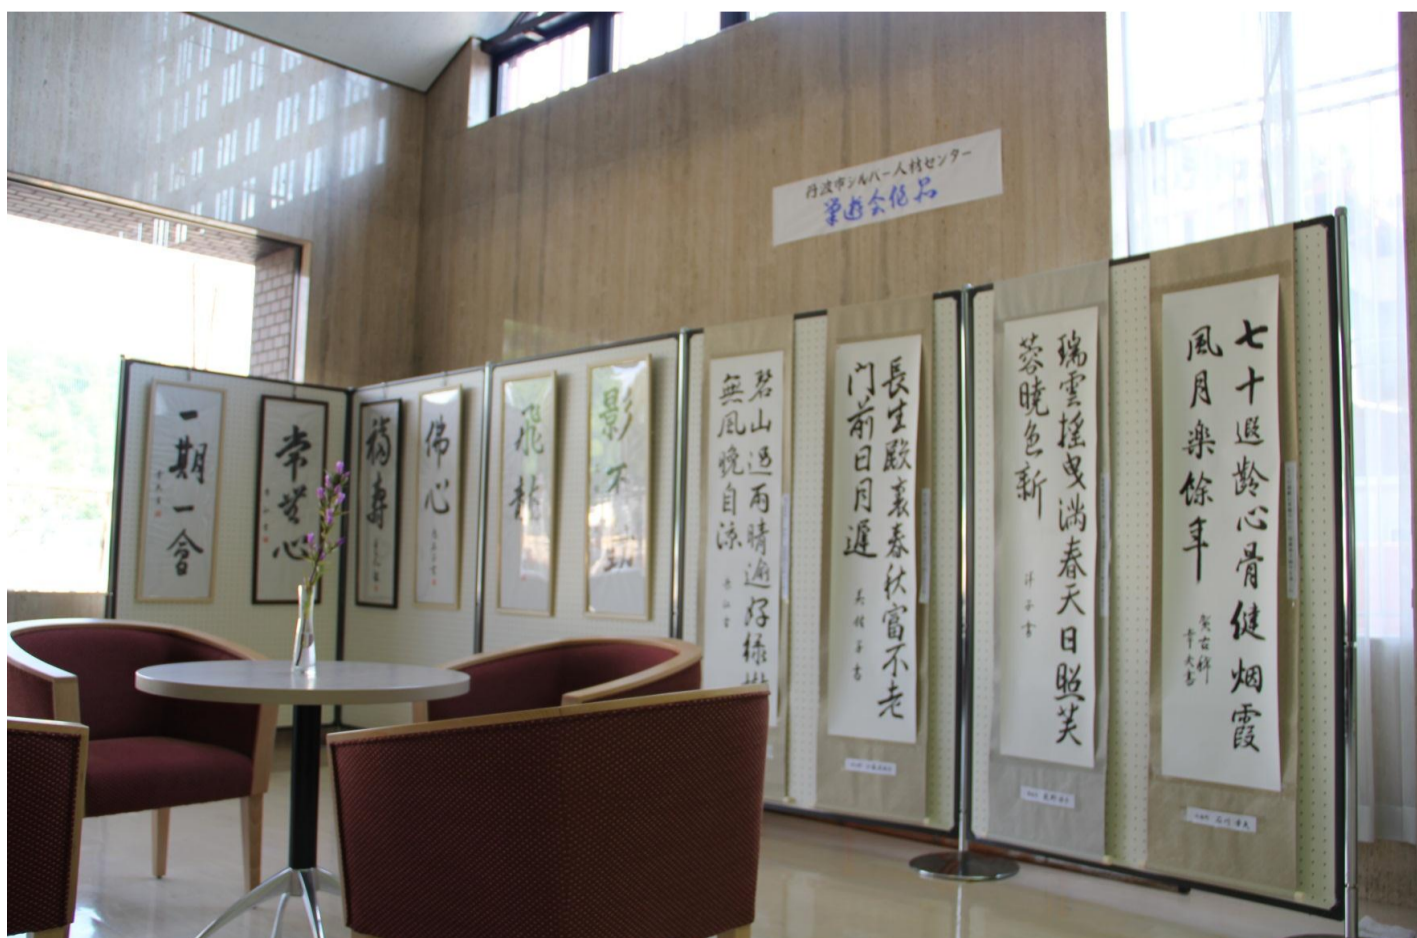 丹波市シルバー人材センター
筆遊会作品
一期一會
常無心
福壽
佛心
飛龍
影不動
碧山過雨晴逾好緑樹
無風晩自涼
長生殿裏春秋富不老
门前日月遲
瑞雲揺曳满春天日照芙
蓉暁色新
洋子書
七十遐齢心骨健烟霞
風月楽餘年
賀古稀
幸夫書